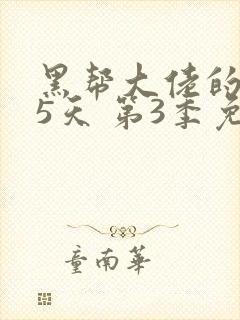 黑帮大佬的
5天 第3季免
童南华